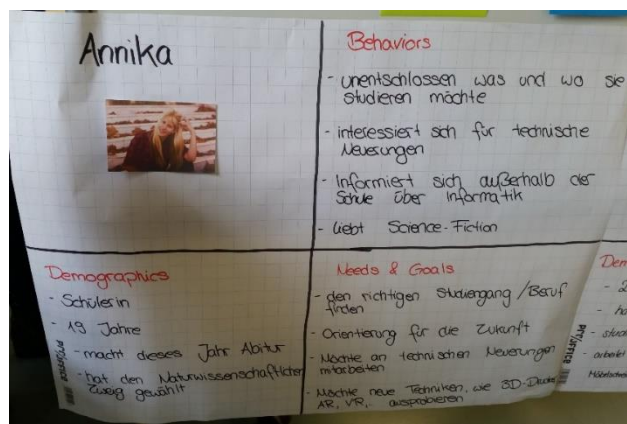 Annika
Behaviors
- unentschlossen was und wo sie
studieren möchte
- interessiert sich für technische
Neuerungen
- Informiert sich außerhalb der
Schule über Informatik
- liebt Science-Fiction
Demographics
- Schülerin
- 19 Jahre
- macht dieses Jahr Abitur
- hat den Naturwissenschaftlichen
Zweig gewählt
Needs & Goals
- den richtigen Studiengang / Beruf
finden
- Orientierung für die Zukunft
- Möchte an technischen Neuerungen
mitarbeiten
- Möchte neue Techniken, wie 3D-Drucker
AR, VR,.. ausprobieren
Dem
- 2
- ha
- stud
- arbeitet